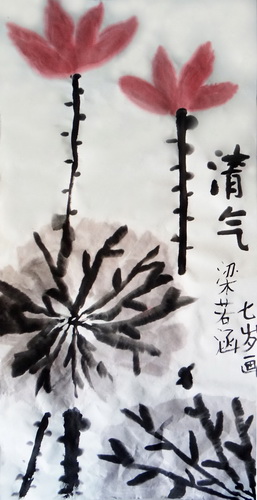 清气
梁若涵
七岁画